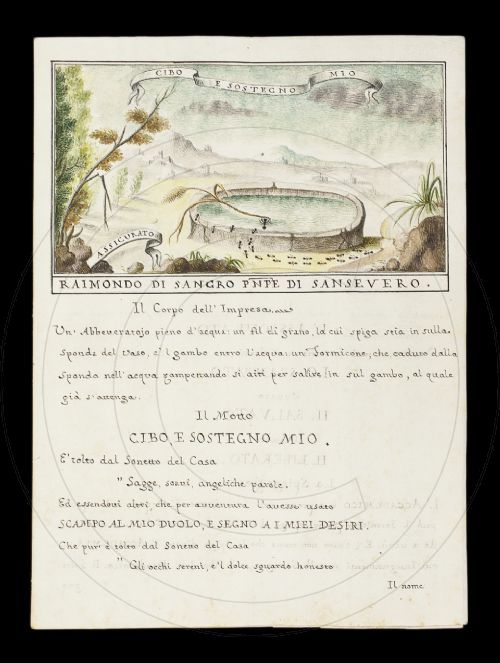 CIBO E SOSTEGNO MIO
ASSICURATO
RAIMONDO DI SANGRO PNPE DI SANSEVERO.
Il Corpo dell'Impresa
Un' Abbeveratojo pieno d'acqua: un fil di grano, la cui spiga stia in sulla
sponda del vaso, e'l gambo entro l'acqua: un' Formicone, che caduto dalla
sponda nell'acqua rampicando si aiti per salire in sul gambo, al quale
già s'attenga.
Il Motto
CIBO, E SOSTEGNO MIO.
E' tolto dal Sonetto del Casa
" Sagge, soavi, angeliche parole.
Ed essendovi altri, che per avventura l'avesse usato
SCAMPO AL MIO DUOLO, E SEGNO A I MIEI DESIRI.
Che pur' è tolto dal Sonetto del Casa
" Gli occhi sereni, e'l dolce sguardo honesto
Il nome